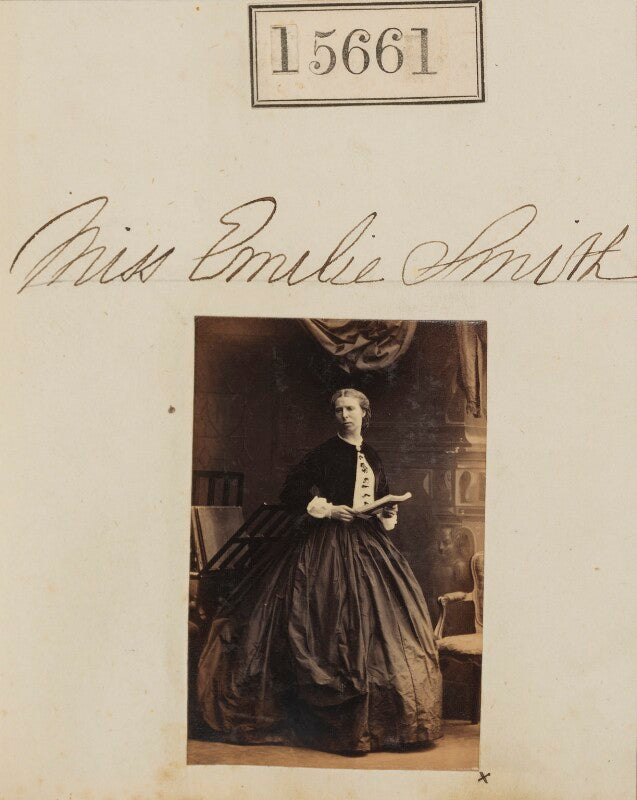 15661
Miss Emilie Smith
x